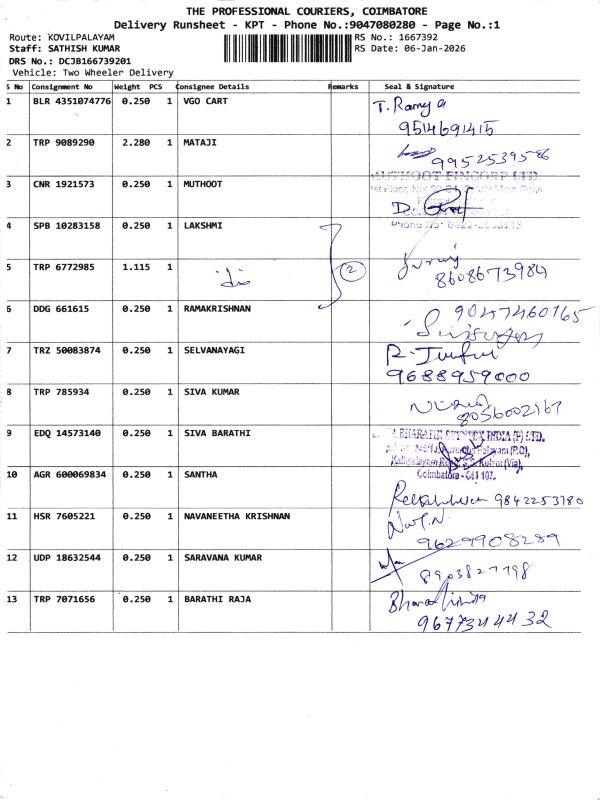 THE PROFESSIONAL COURIERS, COIMBATORE
Delivery Runsheet - KPT - Phone No.:9047080280 - Page No.:1
Route: KOVILPALAYAM RS No.: 1667392
Staff: SATHISH KUMAR RS Date: 06-Jan-2026
DRS No.: DCJB166739201
Vehicle: Two Wheeler Delivery
S No Consignment No Weight PCS Consignee Details Remarks Seal & Signature
1 BLR 4351074776 0.250 1 VGO CART T. Ramya
9514691415
2 TRP 9089290 2.280 1 MATAJI
9952539586
MUTHOOT FINCORP LTD.
3 CNR 1921573 0.250 1 MUTHOOT
4 SPB 10283158 0.250 1 LAKSHMI
5 TRP 6772985 1.115 1 2
8608673984
6 DDG 661615 0.250 1 RAMAKRISHNAN 9047460165
7 TRZ 50083874 0.250 1 SELVANAYAGI
9688959000
8 TRP 785934 0.250 1 SIVA KUMAR
8056002167
9 EDQ 14573140 0.250 1 SIVA BARATHI
INDIA (P) LTD.
Coimbatore - 641 107.
10 AGR 600069834 0.250 1 SANTHA
9842253180
11 HSR 7605221 0.250 1 NAVANEETHA KRISHNAN
9629908289
12 UDP 18632544 0.250 1 SARAVANA KUMAR
8903827798
13 TRP 7071656 0.250 1 BARATHI RAJA
9677344432